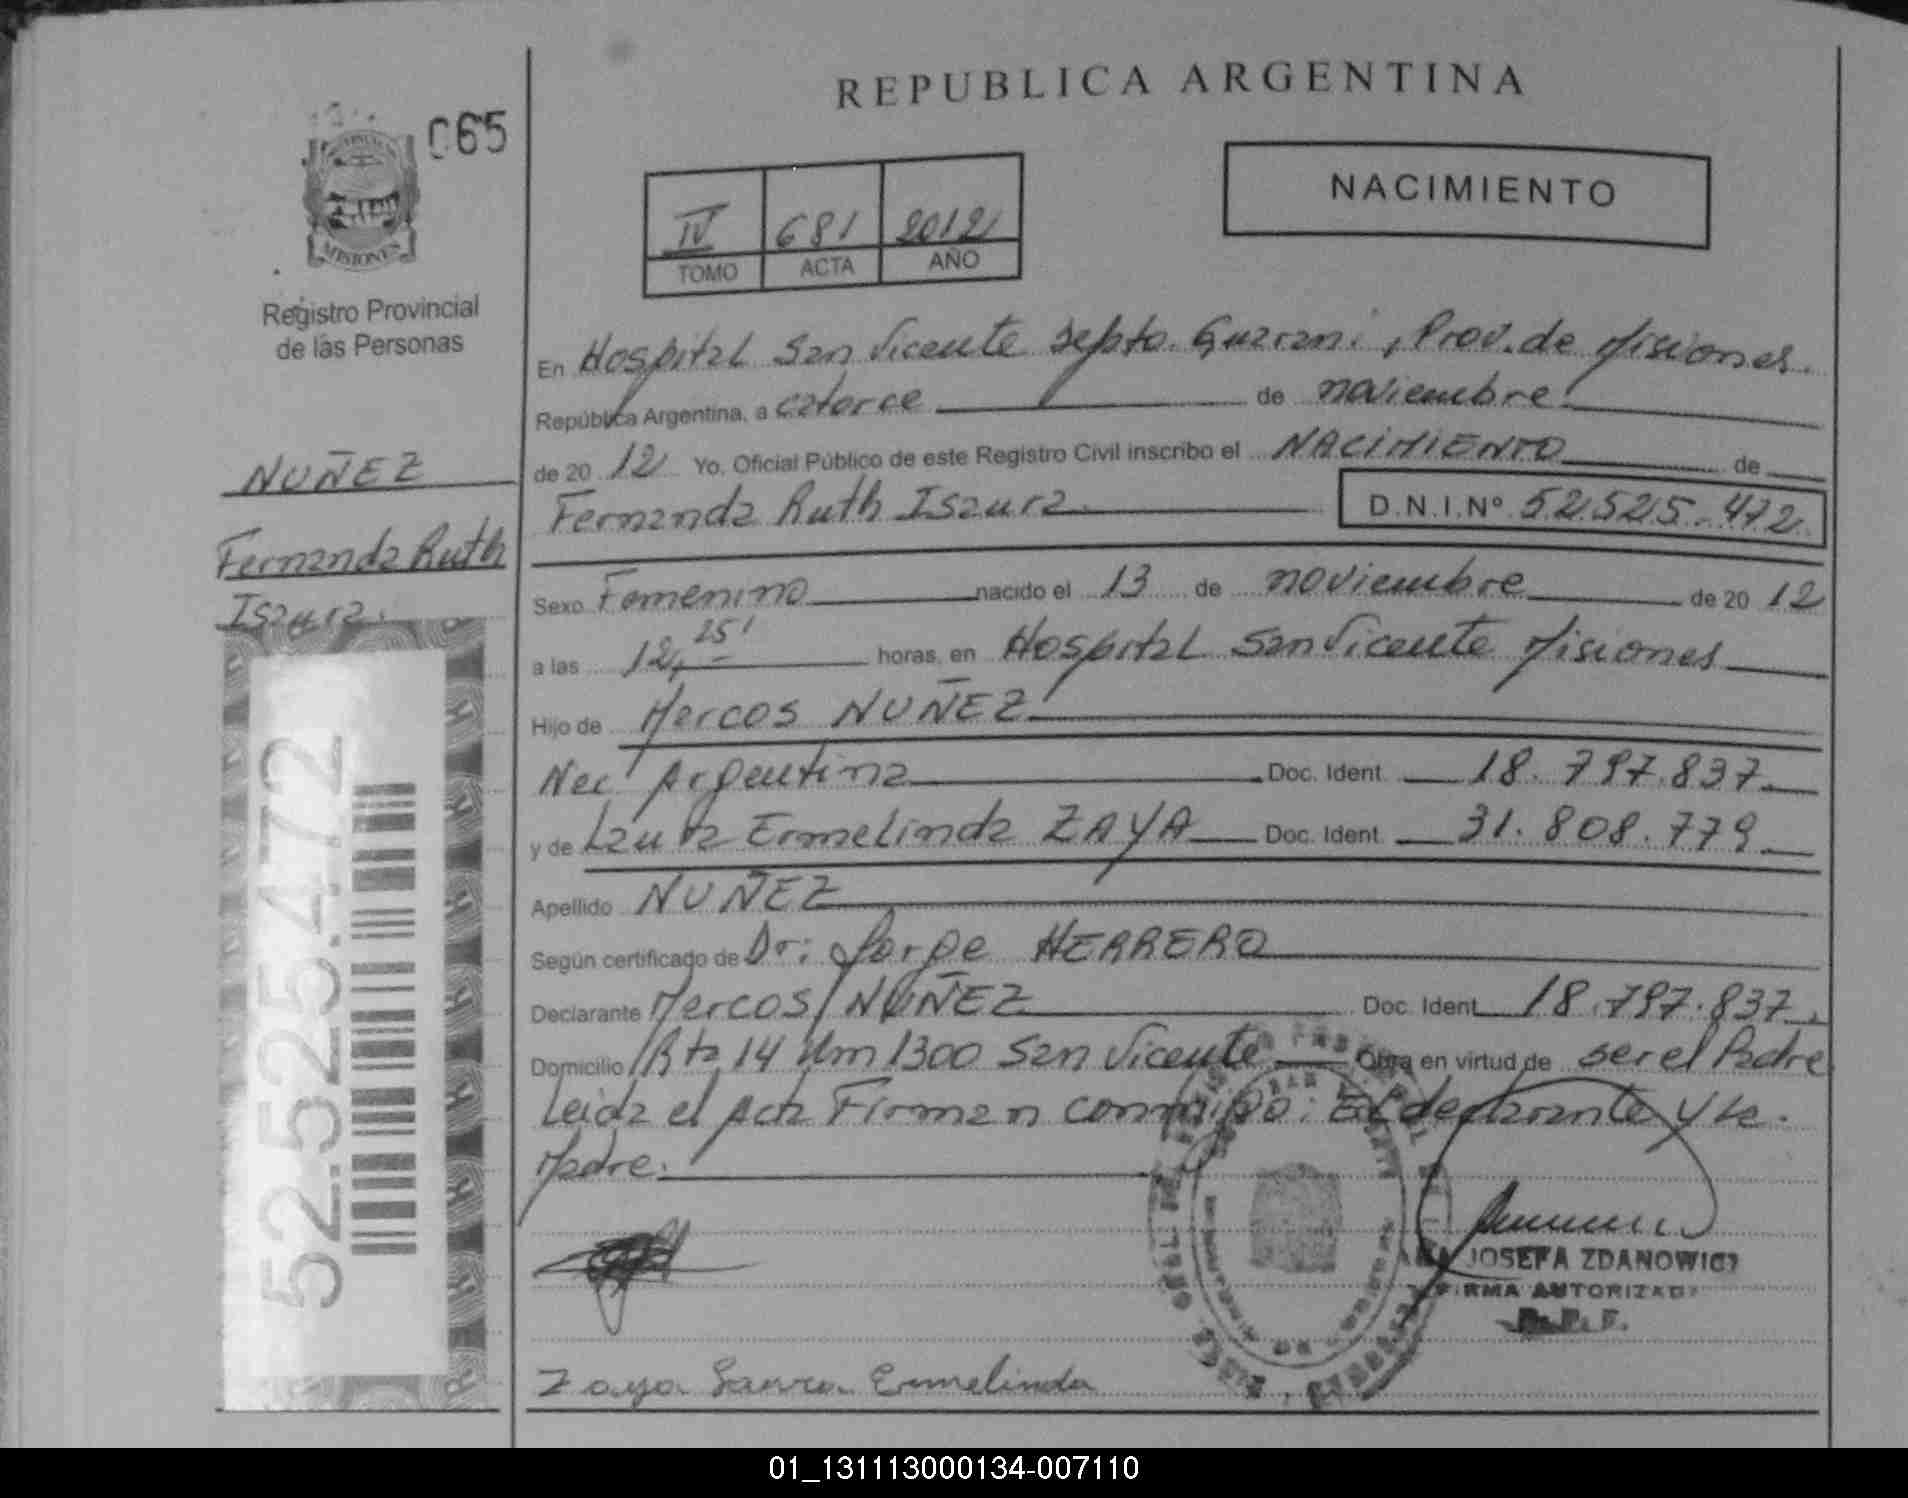 065
MISIONES
Registro Provincial
de las Personas
NUÑEZ
Fernanda Ruth
Isaura.
52.525.472
REPUBLICA ARGENTINA
NACIMIENTO
IV 681 2012
TOMO ACTA AÑO
En Hospital San Vicente Depto. Guarani, Prov. de Misiones.
República Argentina, a catorce de noviembre
de 20 12 Yo, Oficial Público de este Registro Civil inscribo el NACIMIENTO de
Fernanda Ruth Isaura D.N.I.Nº 52.525.472
Sexo Femenino nacido el 13 de noviembre de 20 12
a las 12,25' horas, en Hospital San Vicente Misiones
Hijo de Marcos NUÑEZ
Nac Argentina Doc. Ident. 18.797.837
y de Laura Ermelinda ZAYA Doc. Ident. 31.808.779
Apellido NUÑEZ
Según certificado de Dr: Jorge HERRERO
Declarante Marcos NUÑEZ Doc. Ident. 18.797.837.
Domicilio Rta 14 Km 1300 San Vicente Obra en virtud de ser el Padre
Leida el Acta Firman conmigo: El declarante y la
Madre.
JOSEFA ZDANOWICZ
FIRMA AUTORIZADA
Zaya Laura Ermelinda
01_131113000134-007110